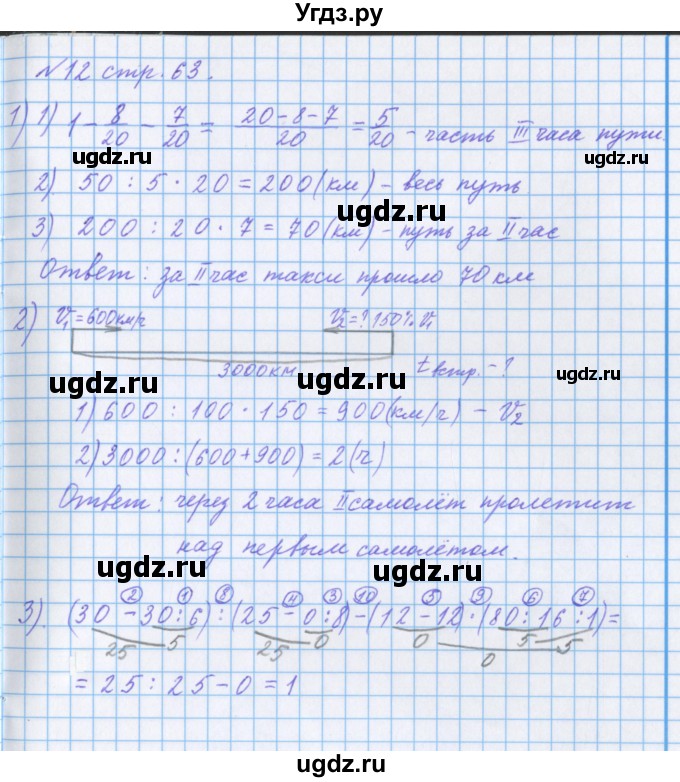 Угдз.ру
№12 стр. 63.
1) 1) 1 - 8/20 - 7/20 = (20-8-7)/20 = 5/20 - часть III часа пути.
ugdz.ru ugdz.ru
2) 50 : 5 · 20 = 200 (км) - весь путь
ugdz.ru
3) 200 : 20 · 7 = 70 (км) - путь за II час
Ответ: за II час такси прошло 70 км
2) V₁ = 600 км/ч V₂ = ? 150% V₁
3000 км t встр. - ?
ugdz.ru ugdz.ru
1) 600 : 100 · 150 = 900 (км/ч) - V₂
ugdz.ru
2) 3000 : (600 + 900) = 2 (ч)
Ответ: через 2 часа II самолёт пролетит
над первым самолётом.
ugdz.ru ugdz.ru
2 1 8 4 3 10 5 9 6 7
3). (30 - 30 : 6) : (25 - 0 : 8) - (12 - 12) · (80 : 16 : 1) =
25 5 25 0 0 5 5
0
ugdz.ru
= 25 : 25 - 0 = 1
ugdz.ru ugdz.ru